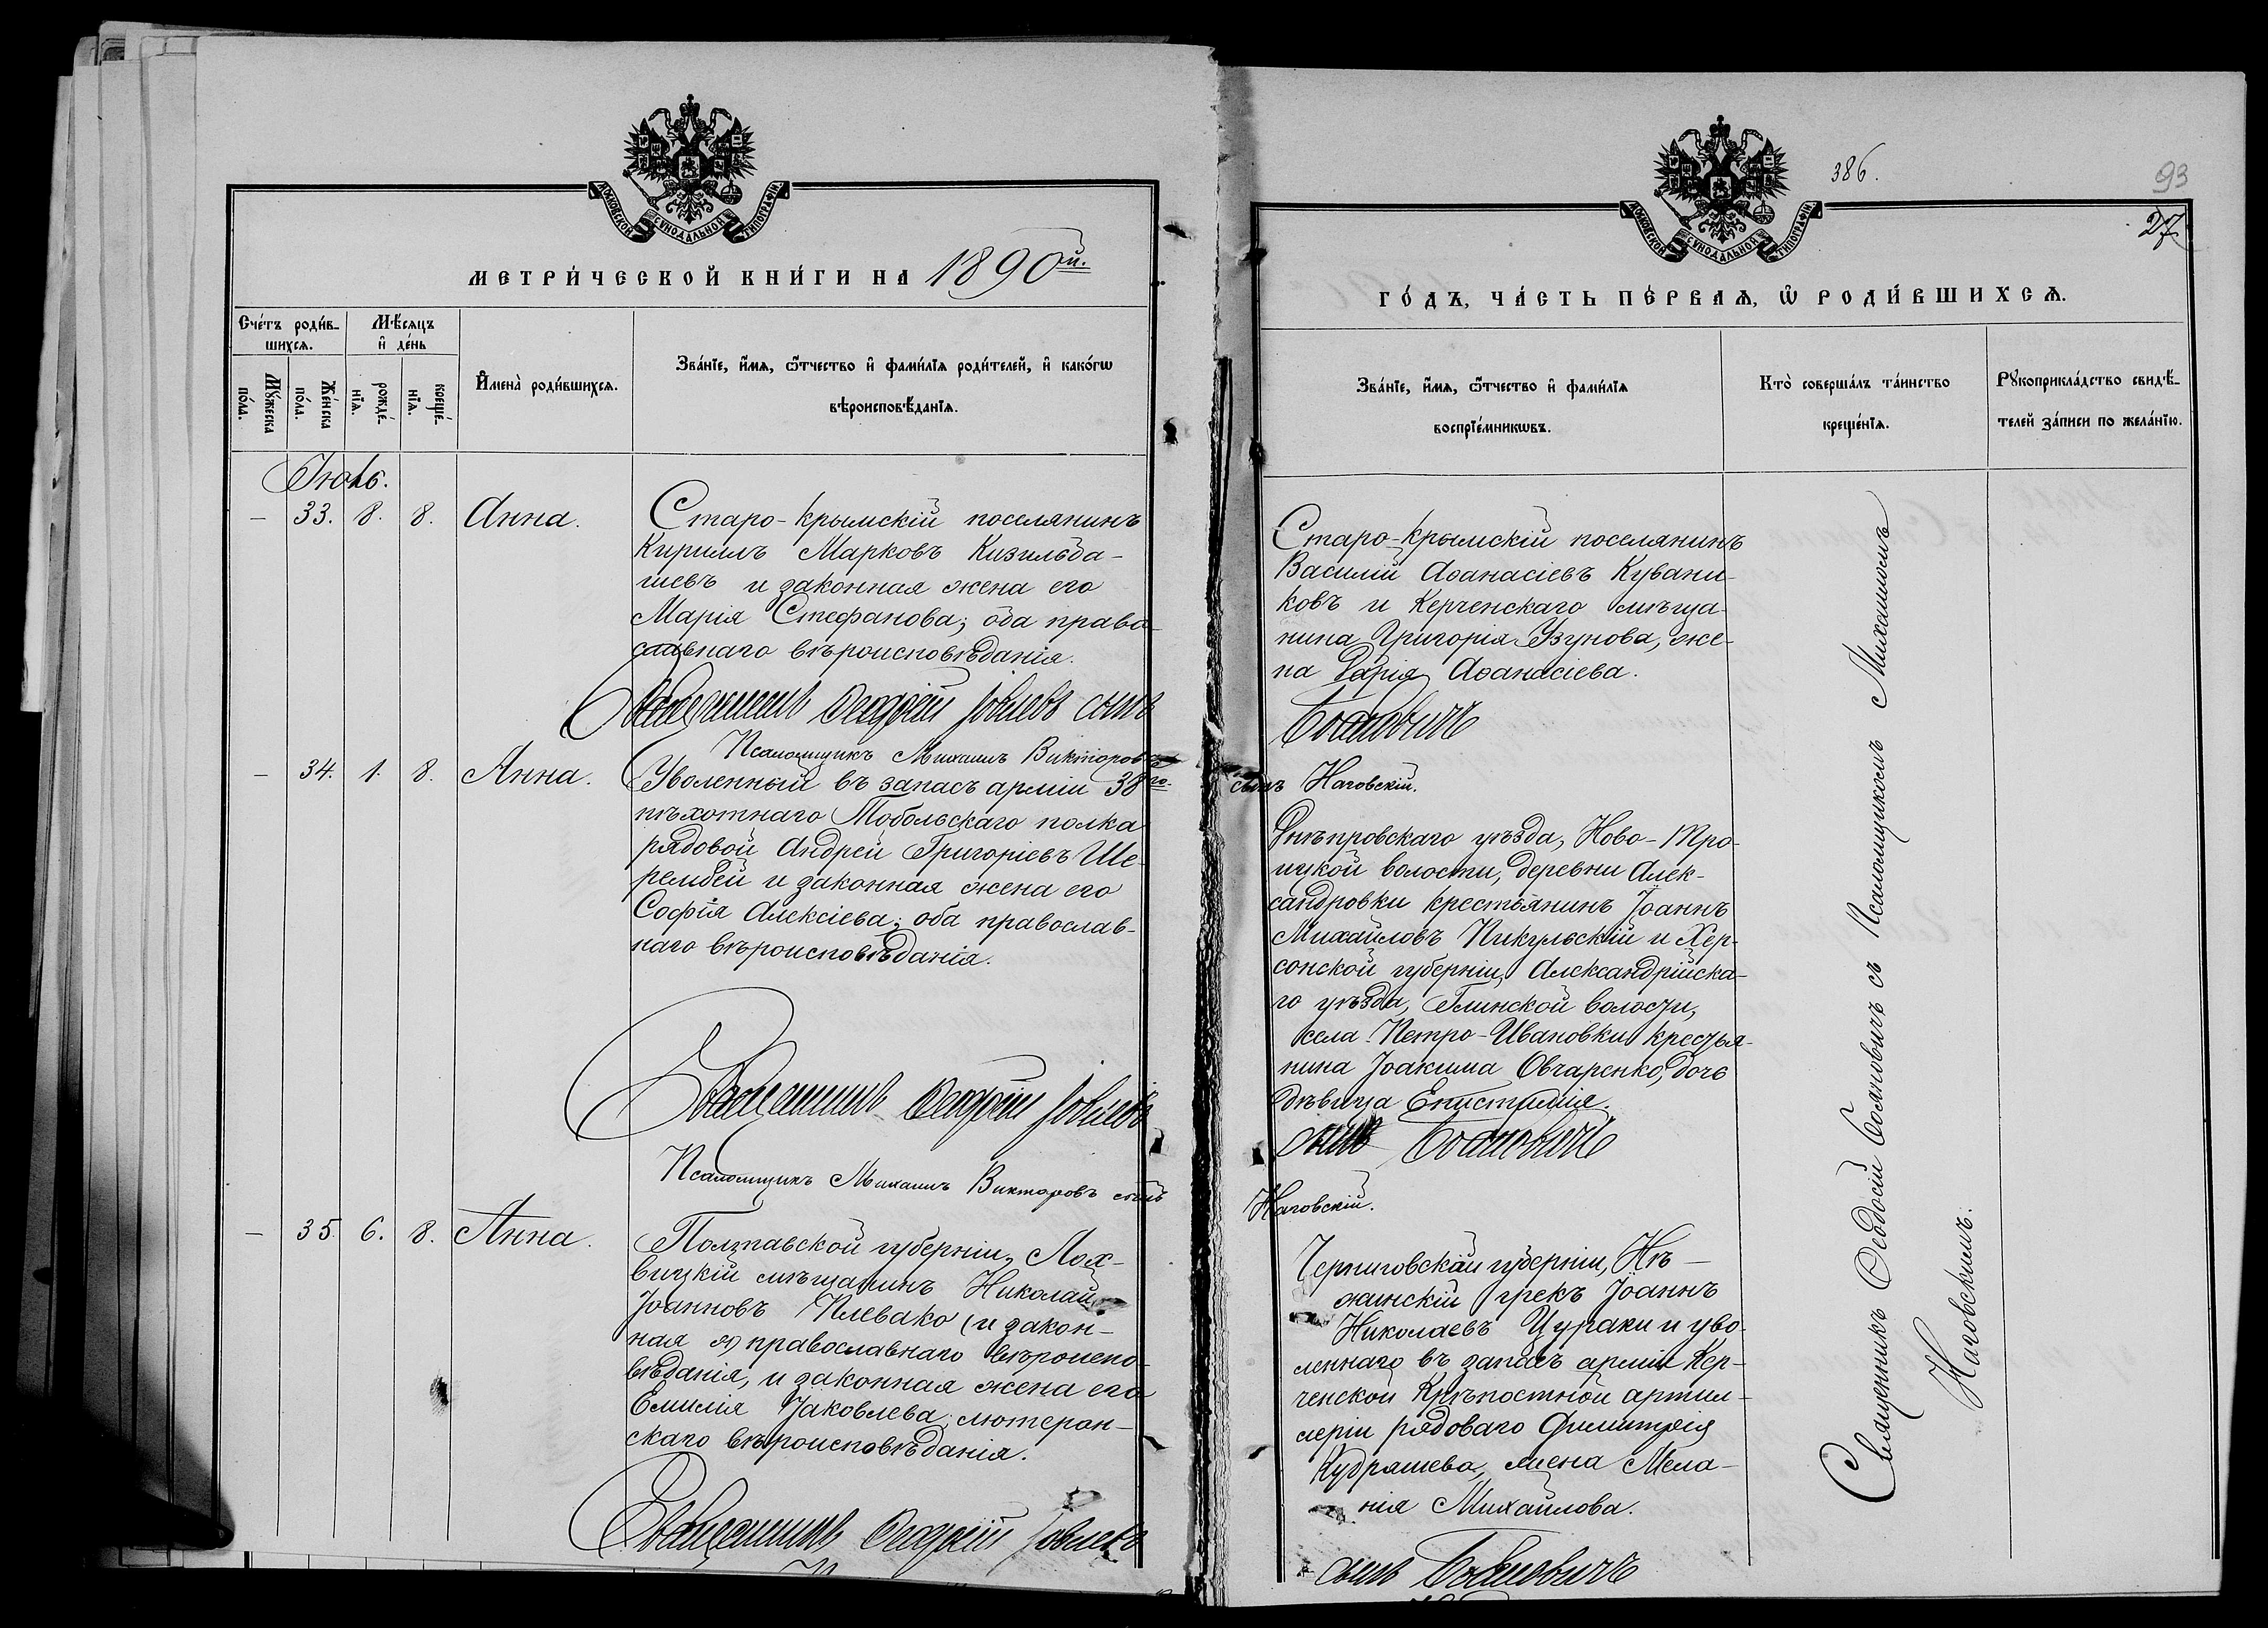 МОСКОВСКОЙ СѴНОДАЛЬНОЙ ТИПОГРАФІИ
МЕТРИ́ЧЕСКОЙ КНИ́ГИ НА 1890й.
Сче́тъ роди́в-
шихсѧ.
Мѣ́сяцъ
и҆ де́нь
Мꙋ́жеска
по́ла.
Же́нска
по́ла.
рожде́-
нїѧ.
креще́-
нїѧ.
И҆мена̀ роди́вшихсѧ.
Зва́нїе, и҆́мѧ, ѻ҆́тчество и҆ фами́лїѧ роди́телей, и҆ како́гѡ
вѣроисповѣ́данїѧ.
Іюль.
— 33. 8. 8. Анна.
Старо-Крымскій поселянинъ
Кириллъ Марковъ Кизильба-
шевъ и законная жена его
Марія Стефанова; оба право-
славнаго вѣроисповѣданія.
Священникъ Ѳеодосій Іовлевъ сынъ
Псаломщикъ Михаилъ Викторовъ
— 34. 1. 8. Анна.
Уволенный въ запасъ арміи 38го
пѣхотнаго Тобольскаго полка
рядовой Андрей Григоріевъ Ше-
рембей и законная жена его
Софія Алексіева; оба православ-
наго вѣроисповѣданія.
Священникъ Ѳеодосій Іовлевъ
Псаломщикъ Михаилъ Викторовъ сынъ
— 35. 6. 8. Анна.
Полтавской губерніи, Лох-
вицкій мѣщанинъ Николай
Іоанновъ Плевако (и закон-
ная я) православнаго вѣроиспо-
вѣданія, и законная жена его
Емилія Іаковлева; лютеран-
скаго вѣроисповѣданія.
Священникъ Ѳеодосій Іовлевъ
386.
93
27
МОСКОВСКОЙ СѴНОДАЛЬНОЙ ТИПОГРАФІИ
ГО́ДЪ, ЧА́СТЬ ПЕ́РВАѦ, Ѡ҆ РОДИ́ВШИХСѦ.
Зва́нїе, и҆́мѧ, ѻ҆́тчество и҆ фами́лїѧ
воспрїе́мникѡвъ.
Кто̀ соверша́лъ та́инство
креще́нїѧ.
Рꙋкоприкла́дство свидѣ́-
телей за́писи по жела́нїю.
Старо-Крымскій поселянинъ
Василій Аѳанасіевъ Кувани-
ковъ и Керченскаго мѣща-
нина Григорія Узунова, же-
на Дарія Аѳанасіева.
Бояновичъ
сынъ Наговскій.
Днѣпровскаго уѣзда, Ново-Тро-
ицкой волости, деревни Алек-
сандровки крестьянинъ Іоаннъ
Михайловъ Пикульскій и Хер-
сонской губерніи, Александрійска-
го уѣзда, Глинской волости,
села Петро-Ивановки крестья-
нина Іоакима Овчаренко, дочь
дѣвица Епистимія.
сынъ Бояновичъ
Наговскій.
Черниговской губерніи, Нѣ-
жинскій грекъ Іоаннъ
Николаевъ Цураки и уво-
леннаго въ запасъ арміи Кер-
ченской Крѣпостной артил-
леріи рядоваго Димитрія
Кудряшева, жена Мела-
нія Михайлова.
сынъ Бояновичъ
Священникъ Ѳеодосій Бояновичъ съ Псаломщикомъ Михаиломъ
Наговскимъ.